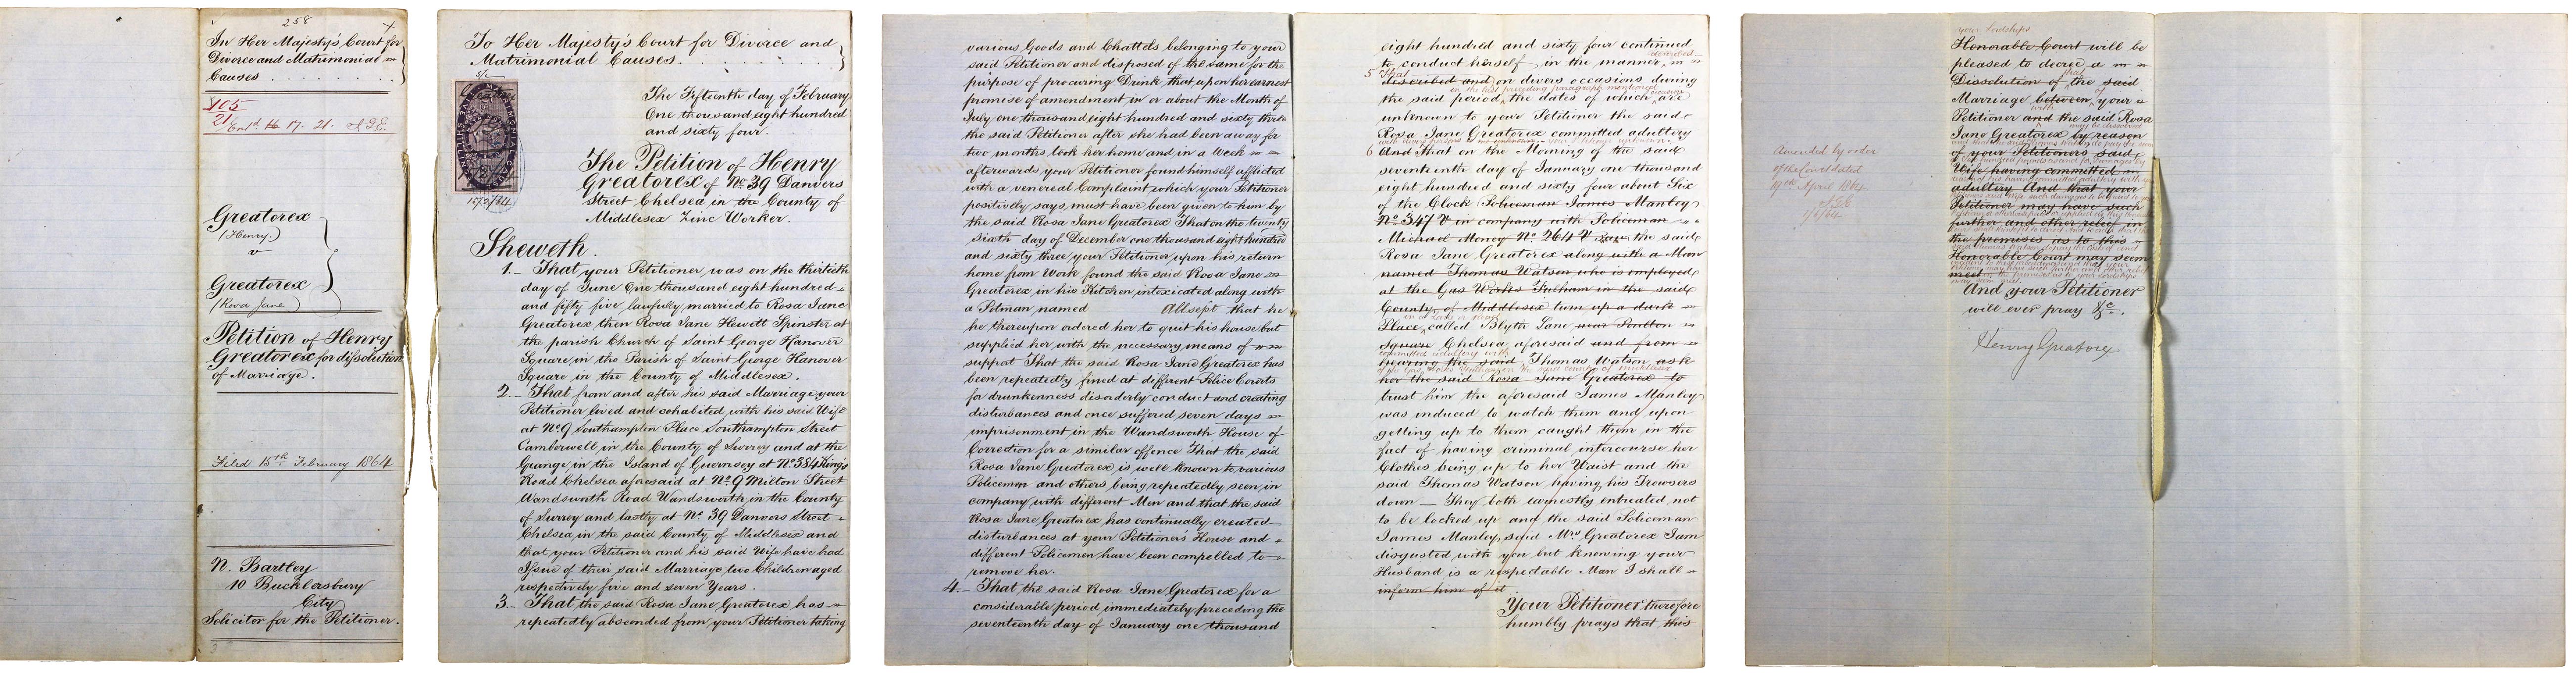 258
In Her Majesty's Court for
Divorce and Matrimonial
Causes
105
21
Greatorex
(Henry)
v
Greatorex
(Rosa Jane)
Petition of Henry
Greatorex for dissolution
of Marriage.
Filed 15th February 1864
N. Bartley
10 Bucklersbury
City
Solicitor for the Petitioner.
To Her Majesty's Court for Divorce and
Matrimonial Causes.
The Fifteenth day of February
One thousand eight hundred
and sixty four.
The Petition of Henry
Greatorex of No. 39 Danvers
Street Chelsea in the County of
Middlesex Zinc Worker.
Sheweth.
1. That your Petitioner was on the thirtieth
day of June One thousand eight hundred
and fifty five lawfully married to Rosa Jane
Greatorex then Rosa Jane Hewitt Spinster at
the parish Church of Saint George Hanover
Square in the Parish of Saint George Hanover
Square in the County of Middlesex.
2. That from and after his said Marriage your
Petitioner lived and cohabited with his said Wife
at No. 9 Southampton Place Southampton Street
Camberwell in the County of Surrey and at the
Grange in the Island of Guernsey at No. 384 King's
Road Chelsea aforesaid at No. 9 Milton Street
Wandsworth Road Wandsworth in the County
of Surrey and lastly at No. 39 Danvers Street
Chelsea in the said County of Middlesex and
that your Petitioner and his said Wife have had
Issue of their said Marriage two Children aged
respectively five and seven Years.
3. That the said Rosa Jane Greatorex has
repeatedly absconded from your Petitioner taking
various Goods and Chattels belonging to your
said Petitioner and disposed of the same for the
purpose of procuring Drink that upon her earnest
promise of amendment in or about the Month of
July one thousand eight hundred and sixty three
the said Petitioner after she had been away for
two months took her home and in a Week
afterwards your Petitioner found himself afflicted
with a venereal Complaint which your Petitioner
positively says must have been given to him by
the said Rosa Jane Greatorex That on the twenty
sixth day of December one thousand eight hundred
and sixty three your Petitioner upon his return
home from Work found the said Rosa Jane
Greatorex in his Kitchen intoxicated along with
a Potman named Allsept that he
he thereupon ordered her to quit his house but
supplied her with the necessary means of
support That the said Rosa Jane Greatorex has
been repeatedly fined at different Police Courts
for drunkenness disorderly conduct and creating
disturbances and once suffered seven days
imprisonment in the Wandsworth House of
Correction for a similar offence That the said
Rosa Jane Greatorex is well known to various
Policemen and others being repeatedly seen in
company with different Men and that the said
Rosa Jane Greatorex has continually created
disturbances at your Petitioner's House and
different Policemen have been compelled to
remove her.
4. That the said Rosa Jane Greatorex for a
considerable period immediately preceding the
seventeenth day of January one thousand
eight hundred and sixty four continued
to conduct herself in the manner
5 That
described and on divers occasions during
in the last preceding paragraph mentioned
the said period the dates of which are
unknown to your Petitioner the said
Rosa Jane Greatorex committed adultery
6 And That on the Morning of the said
seventeenth day of January one thousand
eight hundred and sixty four about Six
of the Clock Policeman James Manley
No. 347 V in company with Policeman
Michael Money No. 264 V saw the said
Rosa Jane Greatorex along with a Man
named Thomas Watson who is employed
at the Gas Works Fulham in the said
County of Middlesex turn up a dark
Place called Blyth Lane near Poulton
Square Chelsea aforesaid and from
committed adultery with
hearing the said Thomas Watson ask
her the said Rosa Jane Greatorex to
trust him the aforesaid James Manley
was induced to watch them and upon
getting up to them caught them in the
fact of having criminal intercourse her
Clothes being up to her Waist and the
said Thomas Watson having his Trowsers
down They both earnestly entreated not
to be locked up and the said Policeman
James Manley said Mrs Greatorex I am
disgusted with you but knowing your
Husband is a respectable Man I shall
inform him of it
Your Petitioner therefore
humbly prays that this
Amended by order
of the Court dated
19th April 1864
your Lordships
Honorable Court will be
pleased to decree a
Dissolution of the said
Marriage between your
with
Petitioner and the said Rosa
may be dissolved
Jane Greatorex by reason
of your Petitioners said
Wife having committed
adultery And that your
Petitioner may have such
further and other relief in
the premises as to this
Honorable Court may seem
meet
And your Petitioner
will ever pray &c.
Henry Greatorex